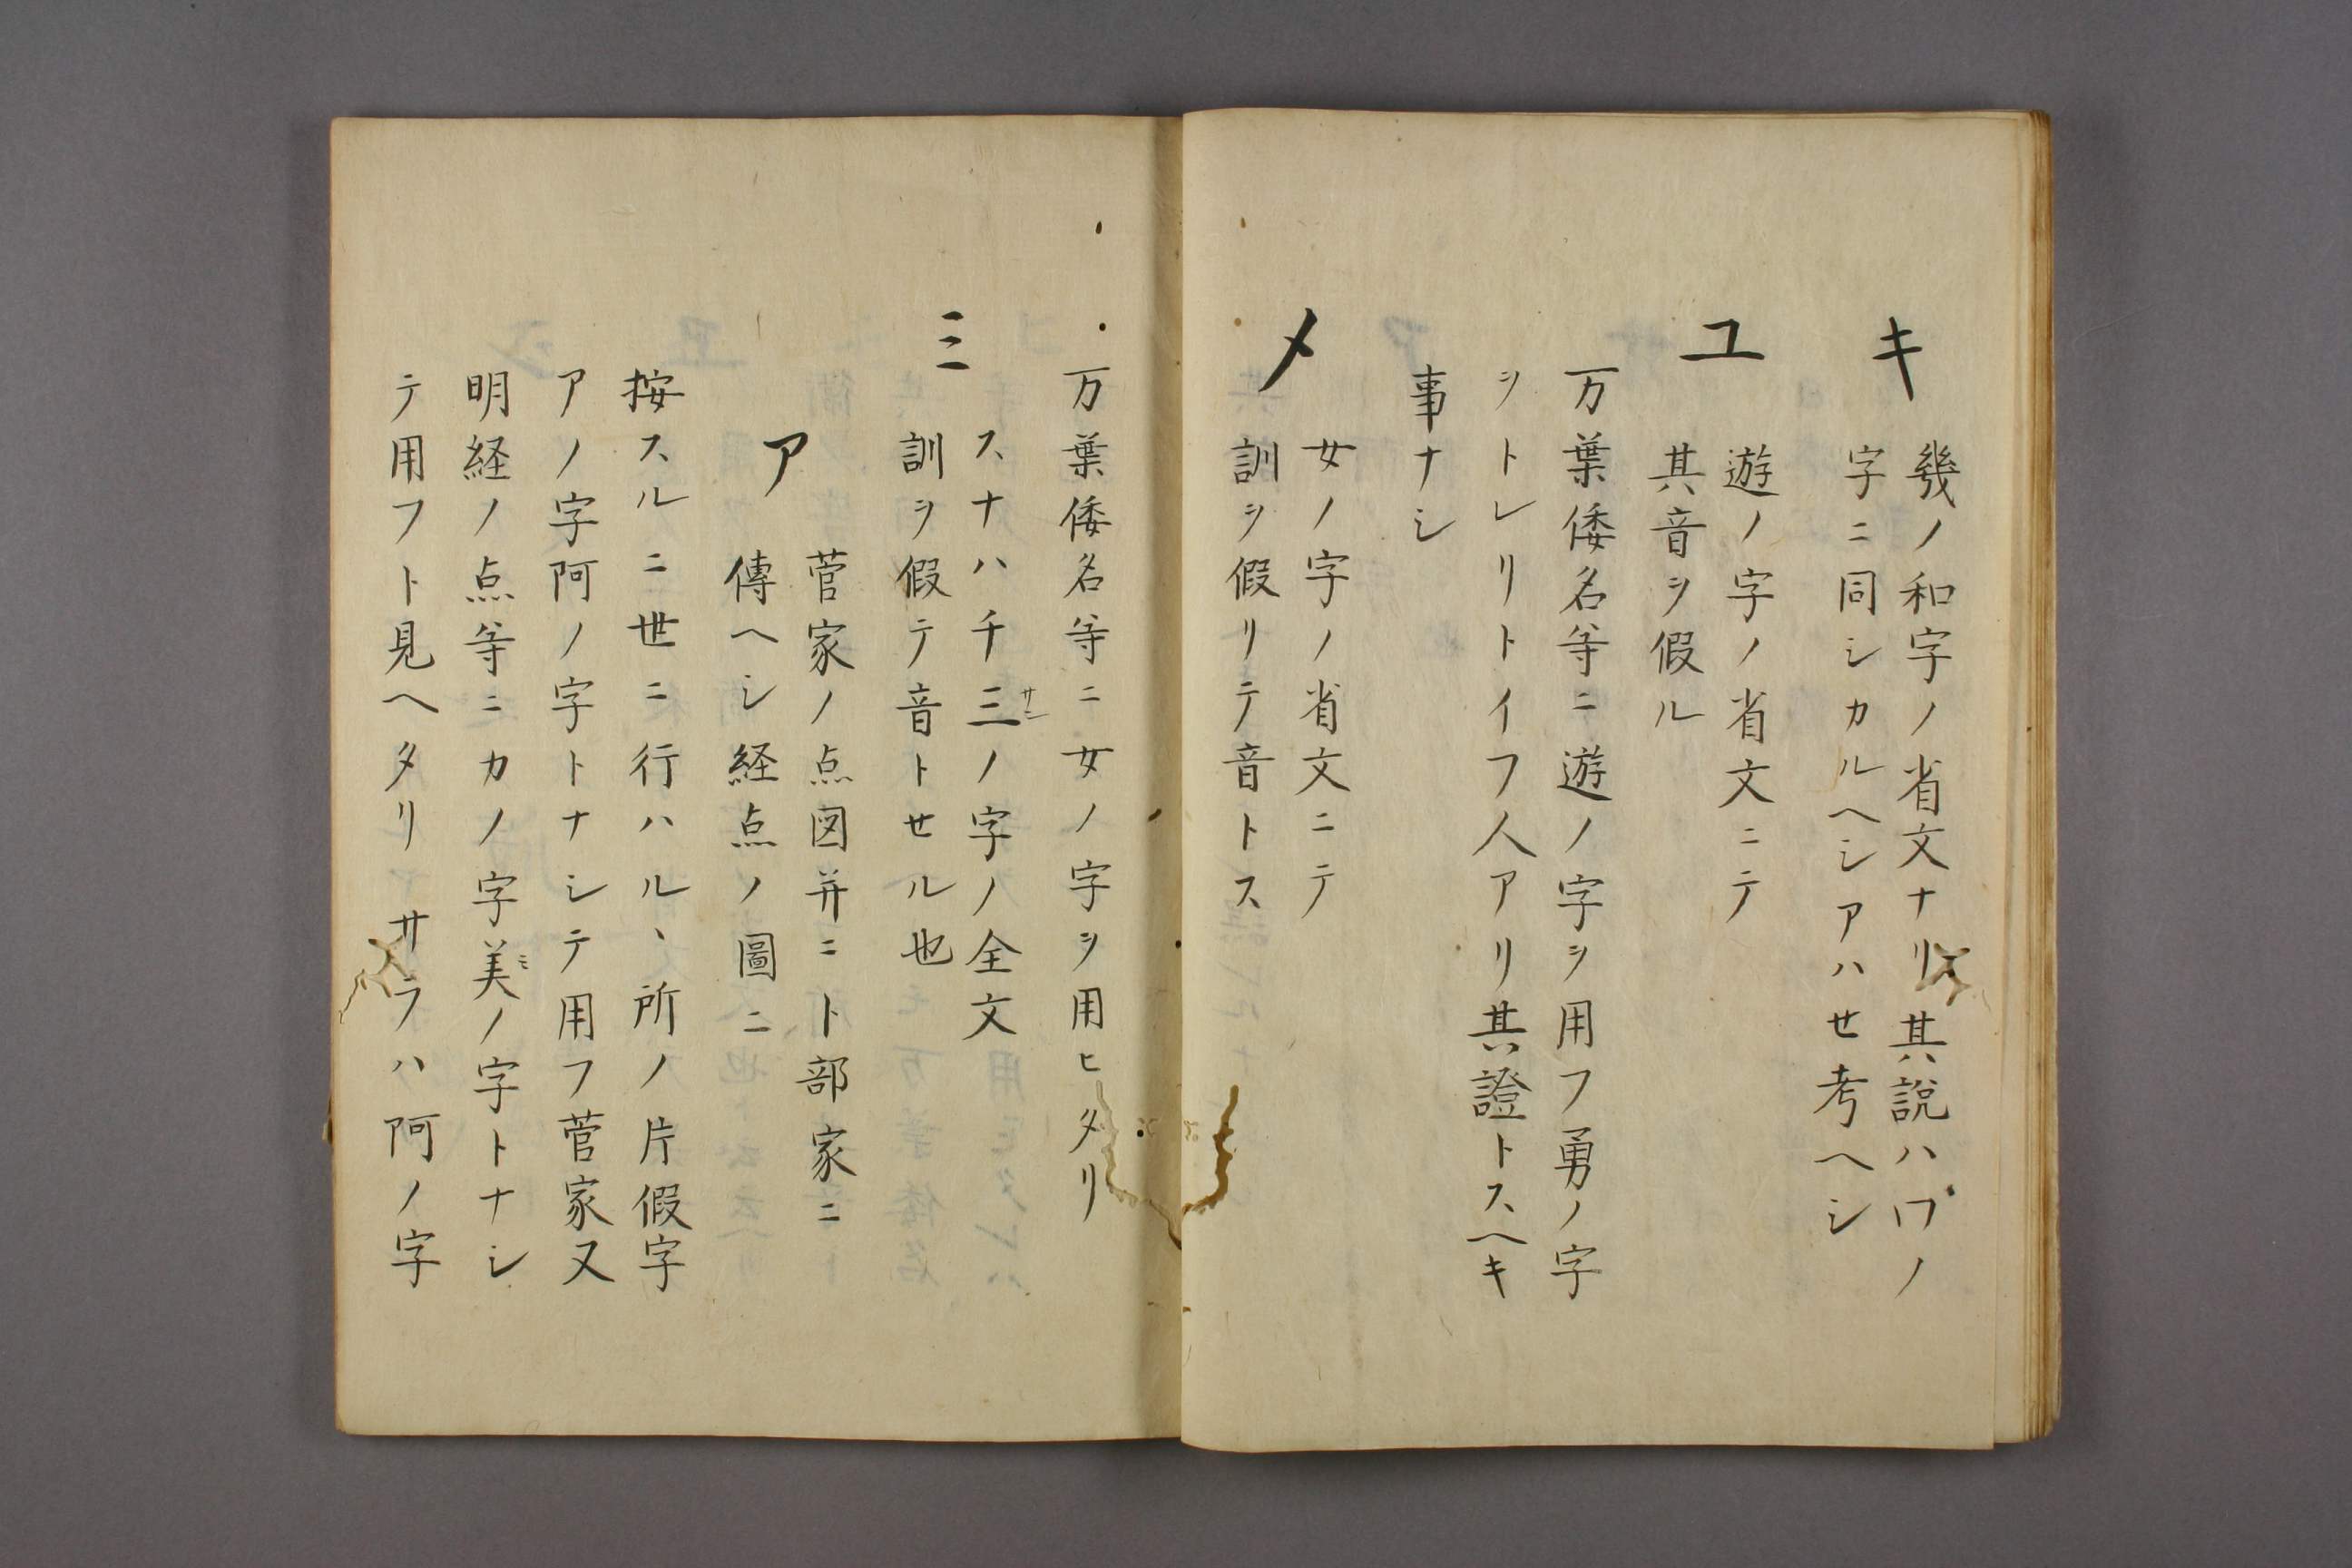 キ
幾ノ和字ノ省文ナリ其説ハワノ
字ニ同シカルヘシアハセ考ヘシ
ユ
遊ノ字ノ省文ニテ
其音ヲ假ル
万葉倭名等ニ遊ノ字ヲ用フ勇ノ字
ヲトレリトイフ人アリ其證トスヘキ
事ナシ
メ
女ノ字ノ省文ニテ
訓ヲ假リテ音トス
万葉倭名等ニ女ノ字ヲ用ヒタリ
ミ
スナハ千三ノ字ノ全文
サン
訓ヲ假テ音トセル也
ア
菅家ノ点図并ニト部家ニ
傳ヘシ経点ノ圖ニ
按スルニ世ニ行ハル丶所ノ片假字
アノ字阿ノ字トナシテ用フ菅家又
明経ノ点等ニカノ字美ノ字トナシ
ミ
テ用フト見ヘタリサラハ阿ノ字